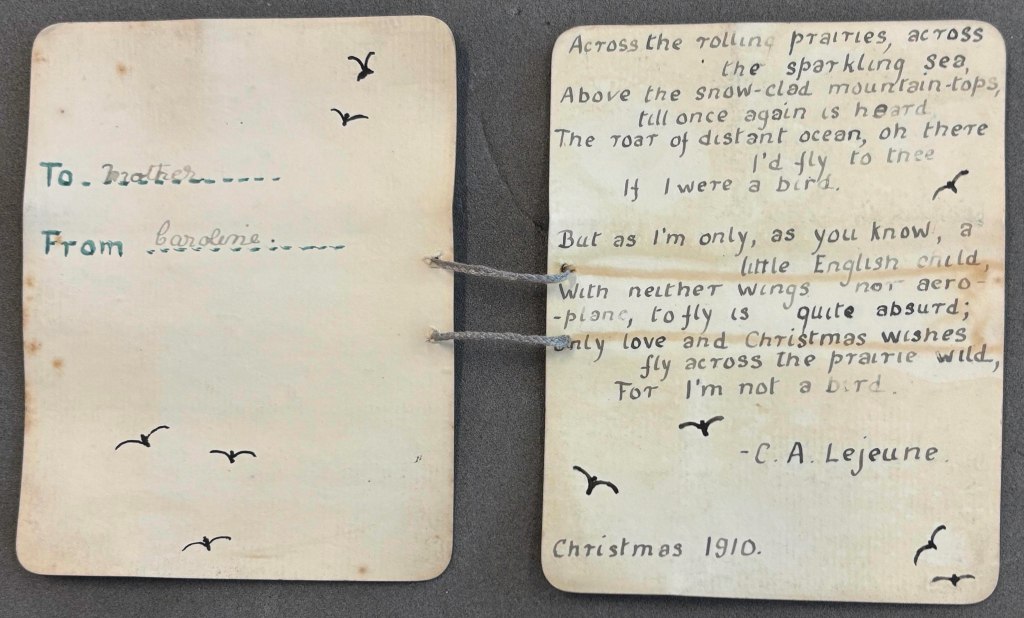 To. Mother
From Caroline.
Across the rolling prairies, across
the sparkling sea,
Above the snow-clad mountain-tops,
till once again is heard
The roar of distant ocean, oh there
I'd fly to thee
If I were a bird.
But as I'm only, as you know, a
little English child,
With neither wings nor aero-
-plane, to fly is quite absurd;
Only love and Christmas wishes
fly across the prairie wild,
For I'm not a bird.
-C. A. Lejeune.
Christmas 1910.